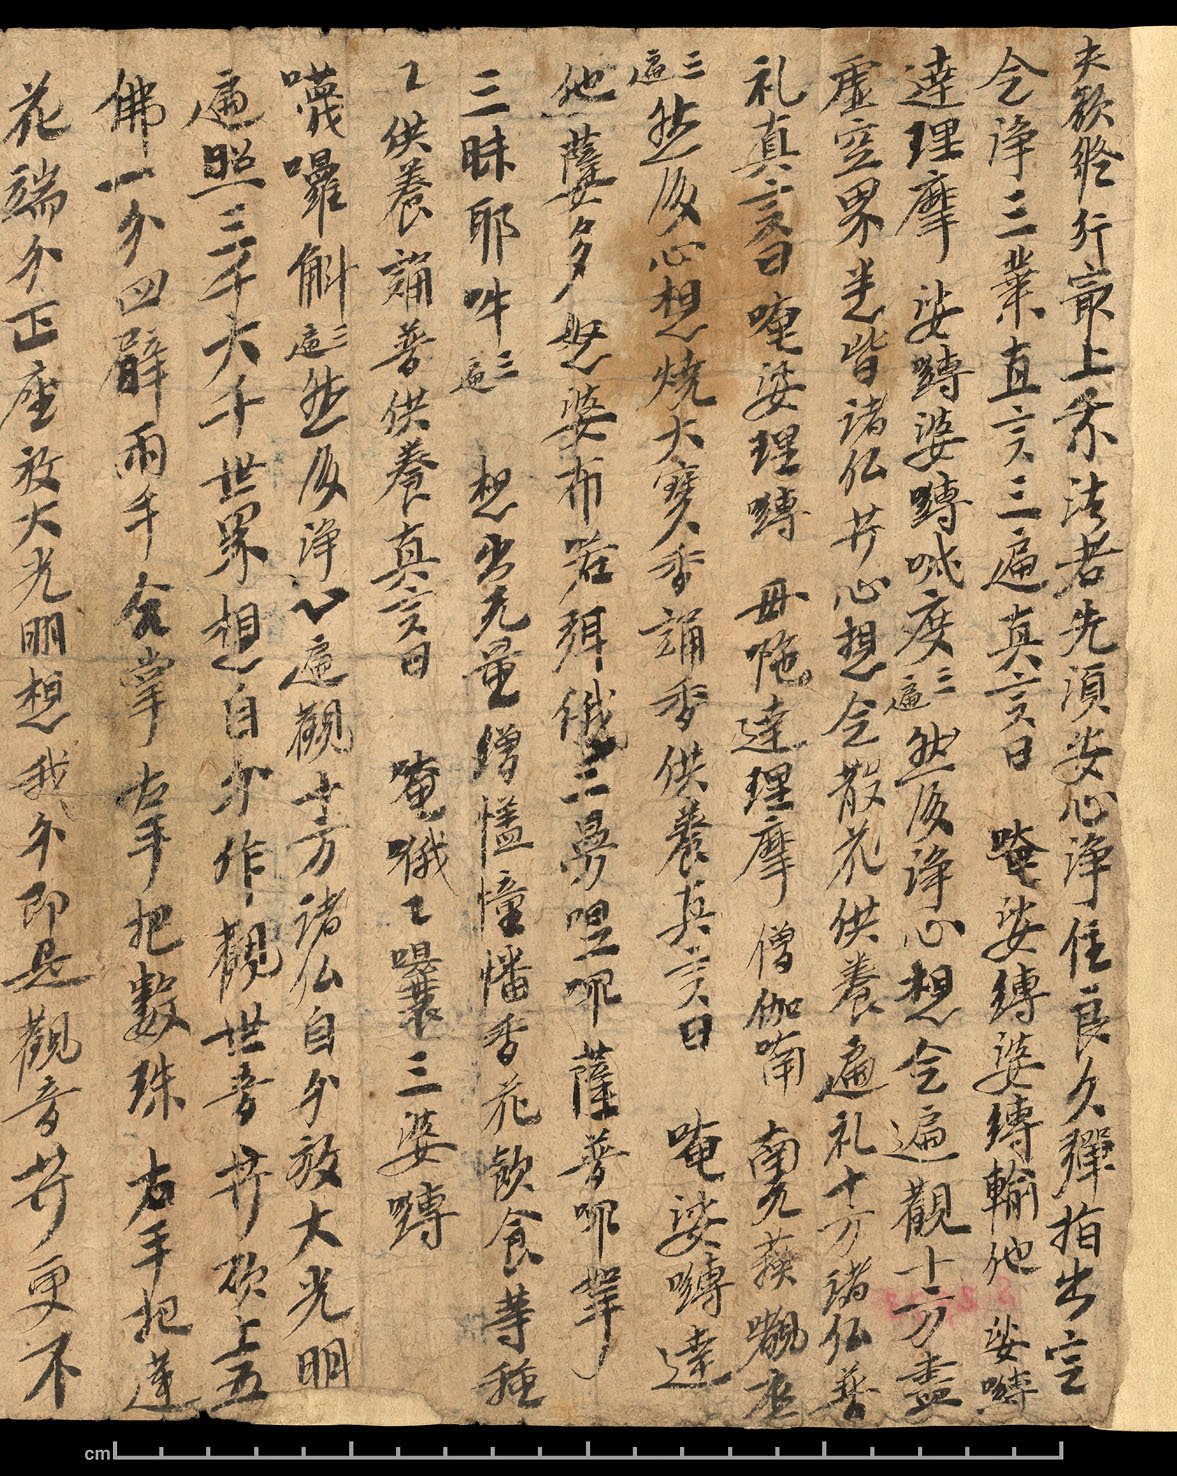 夫欲修行最上乘法者先須安心淨住良久彈指出定
令淨三業真言三遍真言曰　唵娑縛婆縛輸他　娑嚩
達理摩　娑嚩婆嚩吠度三遍然後淨心想令遍觀十方盡
虛空界半皆諸仏菩心想令散花供養遍礼十方諸仏普
礼真言曰唵娑理嚩　毋陁達理摩　僧伽喃　南无蘇覩座
三遍然後心想燒大寶香誦香供養真言曰　唵娑嚩達
他薩婆多怒婆布若弭儗三曼呾哪薩普哪拏
三昧耶吽三遍　想出无量繒盖幢幡香花飲食等種
〻供養誦普供養真言曰　唵儗〻曩三婆嚩
嚩囉斛三遍然後淨心遍觀十方諸仏自身放大光明
遍照三千大千世界想自身作觀世音菩砍上五
佛一身四臂兩手合掌右手把數珠右手把蓮
花端身正座放大光明想我身即是觀音菩更不